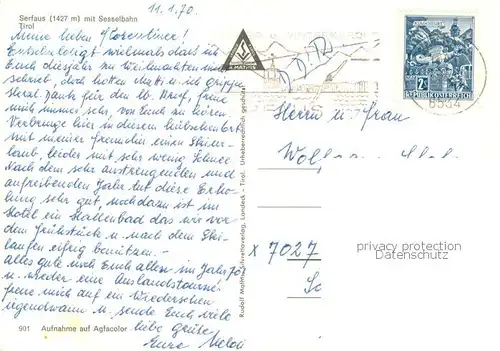 11.1.70.
Serfaus (1427 m) mit Sesselbahn
Tirol
Meine lieben
Entschuldigt vielmals dass ich
Euch diesjahr zu Weihnachten nicht
schrieb, doch hatten Mutti u. ich Grippe
Herzl. Dank für den lb. Brief, freue
mich immer sehr, von Euch zu hören
Verbringe hier in diesem hübschen Ort
mit meiner Freundin einen Skiur-
laub, leider mit sehr wenig Schnee
Nach dem sehr anstrengenden und
aufreibenden Jahr tut diese Erho-
lung sehr gut, noch dazu ist im
Hotel ein Hallenbad das wir vor
dem Frühstück u. nach dem Ski-
laufen eifrig benützen. -
Alles gute noch Euch allen im Jahr 70!
u. wieder eine Auslandstournee
freue mich auf ein Wiedersehen
irgendwann u. sende Euch viele
liebe Grüße
Eure
901 Aufnahme auf Agfacolor
Rudolf Mathis, Landeck - Tirol. Urheberrechtlich geschützt
2 S
REPUBLIK ÖSTERREICH
6534
Herrn u. Frau
Wolf
x 7027
privacy protection
Datenschutz